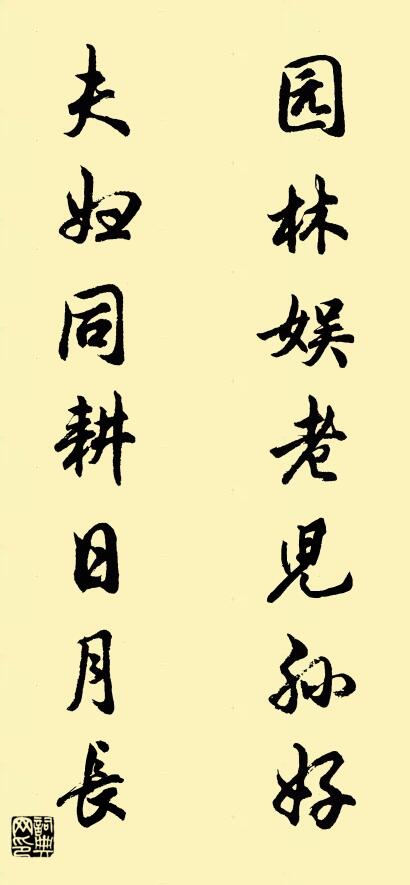 园林娱老児孙好
夫妇同耕日月長
詞典网印